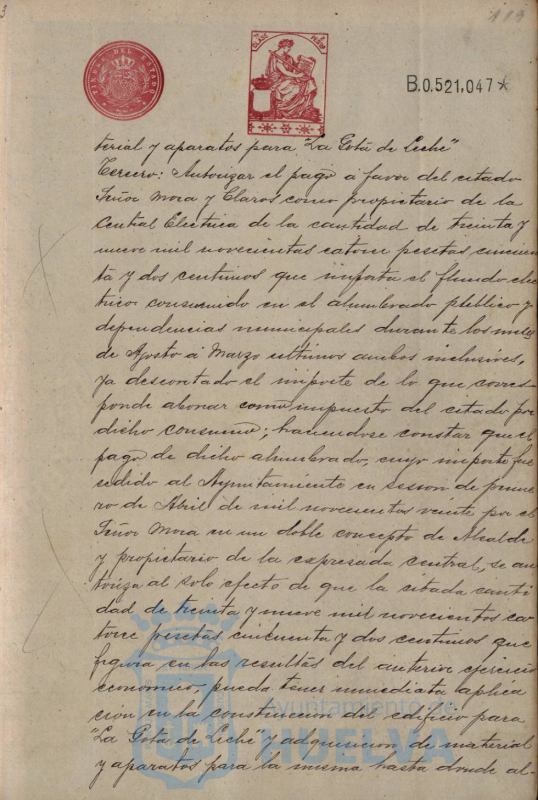 119
TIMBRE DEL ESTADO
B.0.521,047*
terial y aparatos para "La Gota de Leche"
Tercero: Autorizar el pago á favor del citado
Señor Mora y Claros como propietario de la
Central Electrica de la cantidad de treinta y
nueve mil novecientas catorce pesetas cincuen
ta y dos centimos que importa el fluido elec
trico consumido en el alumbrado público y
dependencias municipales durante los meses
de Agosto á Marzo ultimos ambos inclusives,
ya descontado el importe de lo que corres-
ponde abonar como impuesto del citado por
dicho consumo; haciendose constar que el
pago de dicho alumbrado, cuyo importe fue
cedido al Ayuntamiento en sesion de prime
ro de Abril de mil novecientos veinte por el
Señor Mora en un doble concepto de Alcalde
y propietario de la expresada central, se au
toriza al solo efecto de que la citada canti
dad de treinta y nueve mil novecientos ca
torce pesetas cincuenta y dos centimos que
figura en las resultas del anterior ejercicio
economico, pueda tener inmediata aplica
cion en la construccion del edificio para
"La Gota de Leche" y adquisicion de material
y aparatos para la misma hasta donde al-
Ayuntamiento de
HUELVA